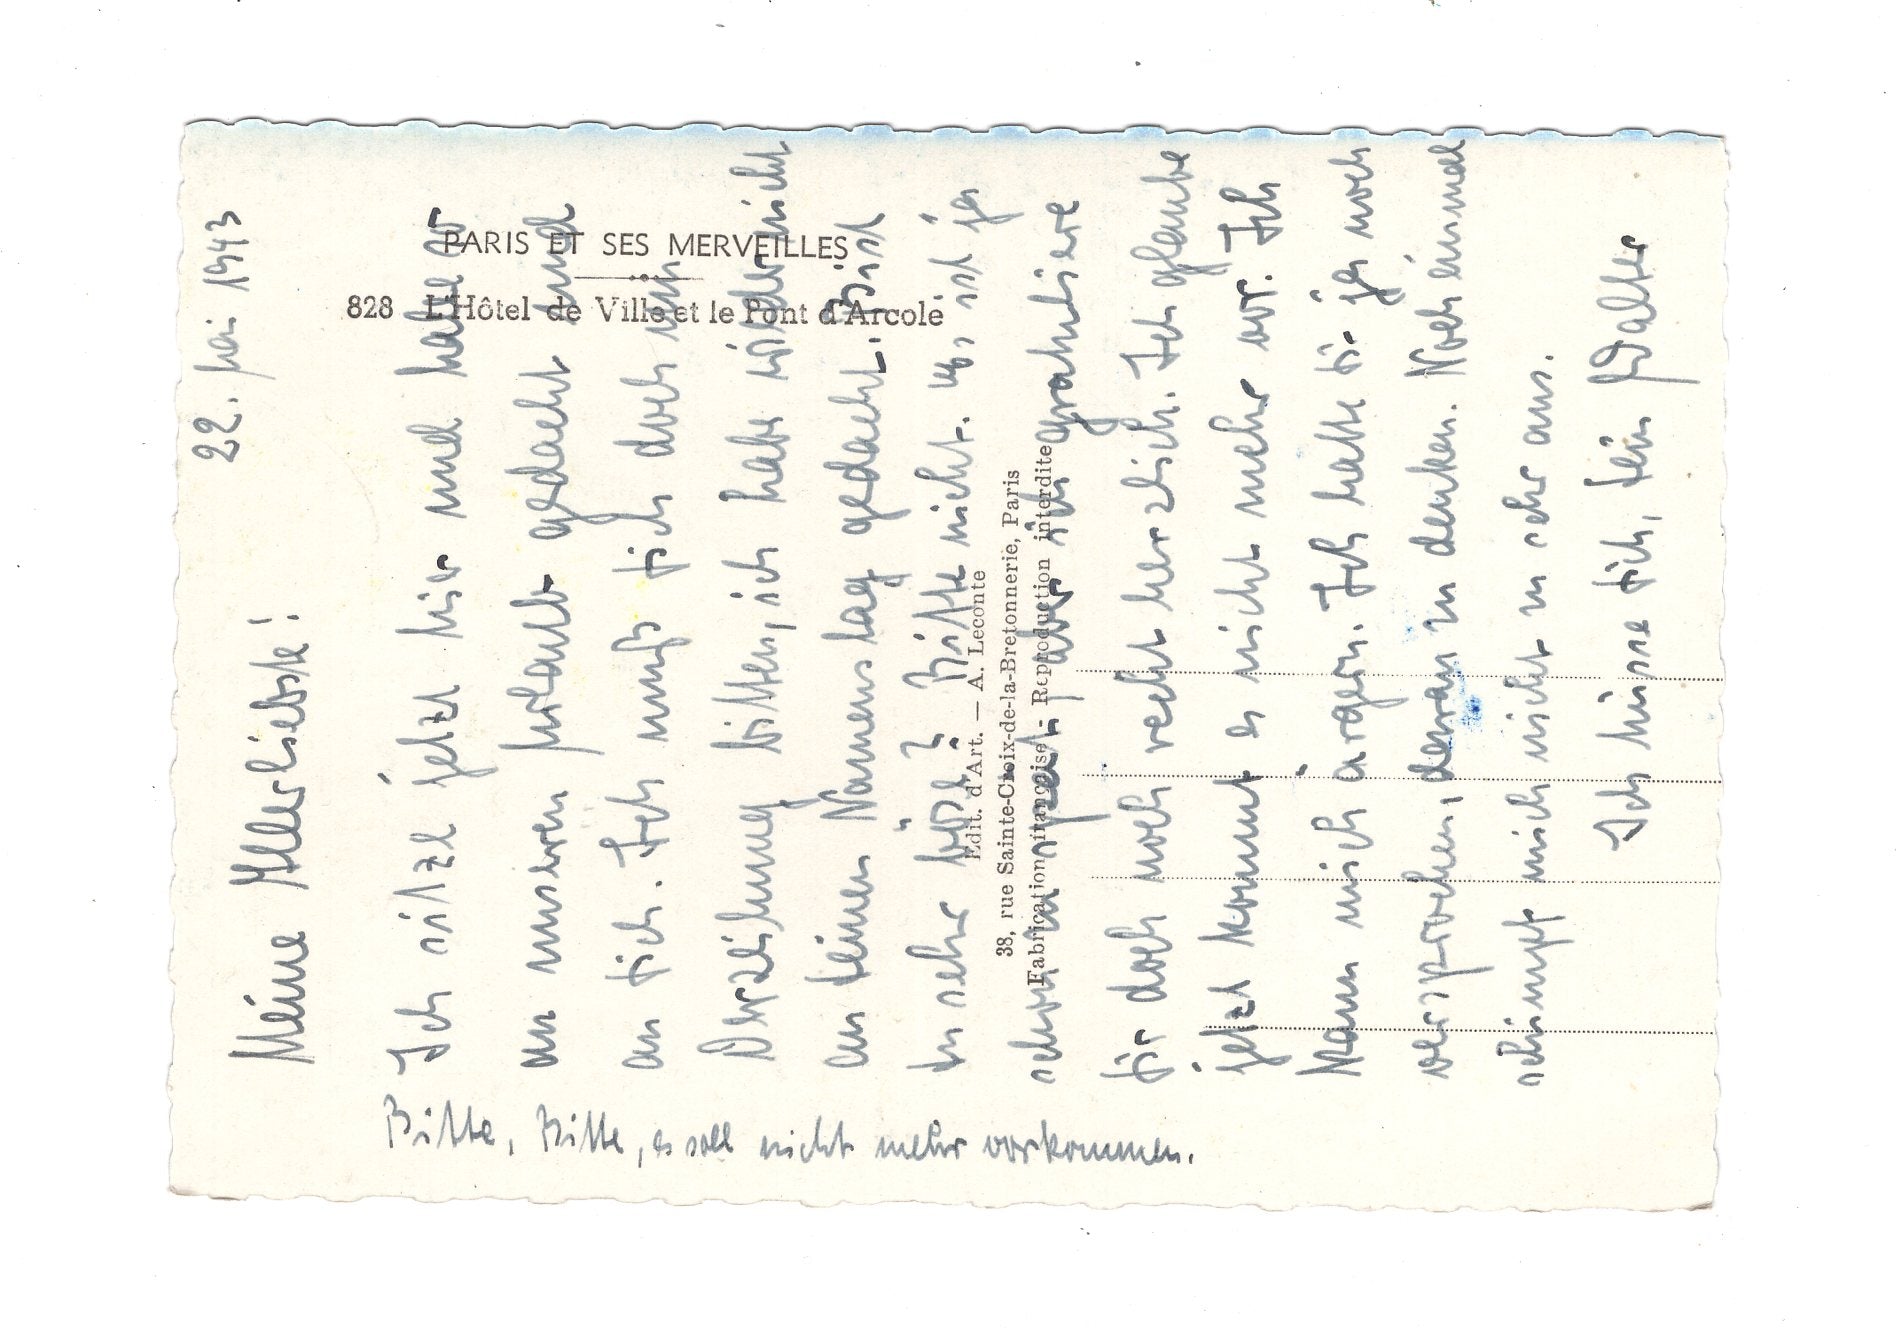 22. Mai 1943
Meine Allerliebste!
Ich sitze jetzt hier und habe so
an unseren Urlaub gedacht und
an Dich. Ich muß Dich doch um
Verzeihung bitten, ich habe wieder nicht
an Deinen Namenstag gedacht. Bist
Du sehr bös? Bitte nicht. Es ist ja
schon zu spät, aber ich gratuliere
Dir doch noch recht herzlich. Ich glaube
jetzt kommt es nicht mehr vor. Ich
kann mich ärgern. Ich hatte Dir ja noch
versprochen, daran zu denken. Noch einmal
schimpf mich nicht zu sehr aus.
Ich küsse Dich, Dein Walter
Bitte, Bitte, es soll nicht mehr vorkommen.
PARIS ET SES MERVEILLES
828 L'Hôtel de Ville et le Pont d'Arcole
Edit. d'Art. — A. Leconte
38, rue Sainte-Croix-de-la-Bretonnerie, Paris
Fabrication française - Reproduction interdite